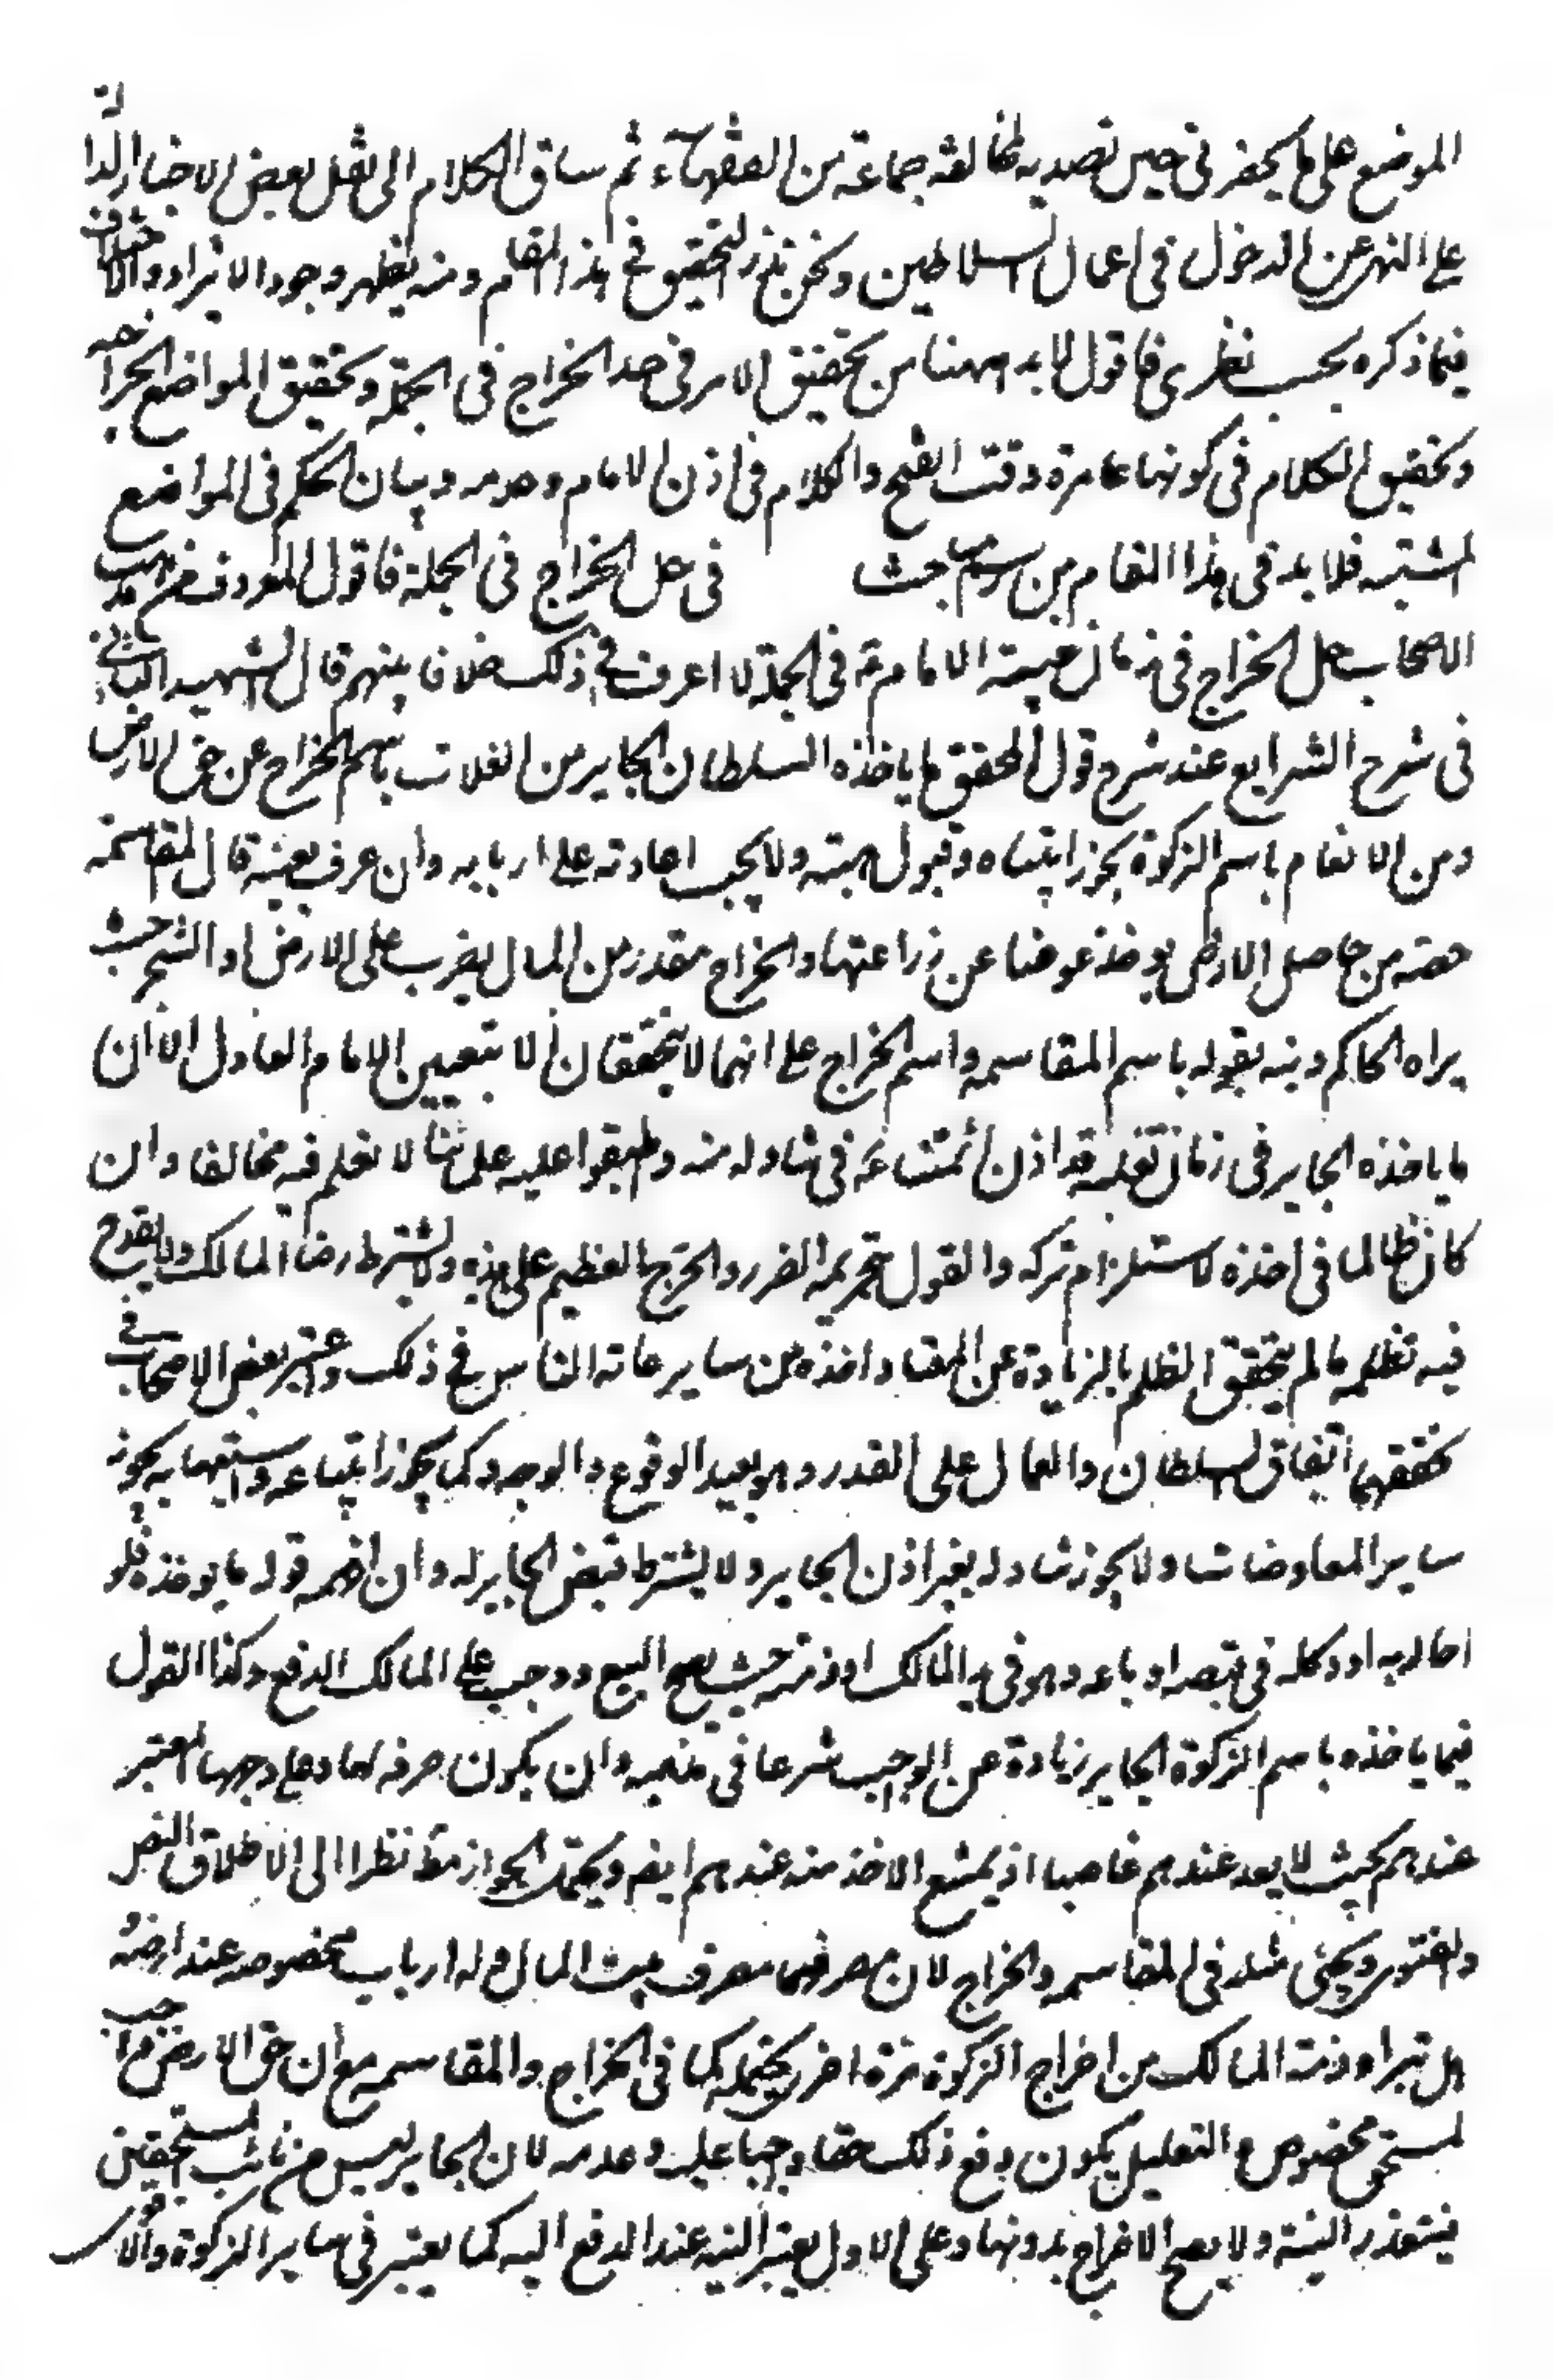 الموضع على ما يحضر في حين تصديه لمخالفه جماعة من الفقهآء ثم ساق الكلام الى نقل بعض الاخبار الدالة
على النهى عن الدخول في اعمال السلاطين ونحن نذكر التحقيق في هذا المقام ومنه يظهر وجوه الايراد والاختلاف
فيما ذكره بحسب نظرى فاقول لا بد ههنا من تحقيق الامر في حد الخراج في الجملة وتحقيق المواضع الخراجيه
وتحقيق الكلام في كونها عامرة وقت الفتح والكلام في اذن الامام وعدمه وبيان الحكم في المواضع
المشتبه فلا بد في هذا المقام من رسم مباحث في حل الخراج في الجملة فاقول المعروف من مذهب
الاصحاب حل الخراج في زمان غيبة الامام ع في الجملة لا اعرف في ذلك خلافا بينهم قال الشهيد الثاني
في شرح الشرايع عند شرح قول المحقق ما ياخذه السلطان الجاير من الغلات باسم الخراج عن حق الارض
ومن الانعام باسم الزكوة يجوز ابتياعه وقبول هبته ولا يجب اعادته على اربابه وان عرف بعينه قال المقاسمة
حصة من حاصل الارض يوخذ عوضا عن زراعتها والخراج مقدر من المال يضرب على الارض او الشجر حيث
يراه الحاكم ونبه بقوله باسم المقاسمه واسم الخراج على انهما لا يتحققان الا بتعيين الامام العادل الا ان
ما ياخذه الجاير في زمان تغلبه قد اذن ائمتنا ع في تناوله منه وطبقوا عليه علمائنا لا نعلم فيه مخالفا وان
كان ظالما في اخذه لاستلزام تركه والقول بتحريمه الضرر والحرج العظيم على هذه ولا يشترط رضا المالك ولا يقدح
فيه تظلمه ما لم يتحقق الظلم بالزيادة عن المعتاد اخذه من ساير عامة الناس في ذلك واعتبر بعض الاصحاب في
تحققهما اتفاق السلطان والعمال على القدر وهو بعيد الوقوع والوجه وكما يجوز ابتياعه واستيهابه يجوز
ساير المعاوضات ولا يجوز تناوله بغير اذن الجاير ولا يشترط قبض الجاير له وان افهمه قوله ما يوخذه فلو
احاله به او وكله في قبضه او باعه وهو في يد المالك او ذمته حيث يصح البيع ووجب على المالك الدفع وكذا القول
فيما ياخذه باسم الزكوة الجاير زيادة عن الواجب شرعا في مذهبه وان يكون صرفه لها على وجهها المعتبر
عندهم بحيث لا يعد عندهم غاصبا اذ يمتنع الاخذ منه عندهم ايضم ويحتمل الجواز مط نظرا الى الاطلاق النص
والفتوى ويجئ مثله في المقاسمه والخراج لان مصرفهما مصرف بيت المال وله ارباب مخصوصه عند ارضه و
هل تبرا ذمة المالك من اخراج الزكوة مرة اخرى يحتمله كما في الخراج والمقاسمه مع ان حق الارض واجب
لمستحق مخصوص والتعليل بكون دفع ذلك حقا واجبا عليه وعدمه لان الجاير ليس من نائب المستحقين
فيتعذر النية ولا يصح الاخراج بدونها وعلى الاول يعتبر النيه عند الدفع اليه كما يعتبر في ساير الزكوة والاقوى